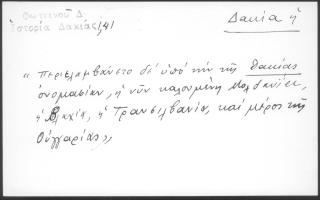 Φωτεινοῦ Δ.
Ἱστορία Δακίας, 1, 41
Δακία ἡ
« περιελαμβάνετο δέ ὑπό τήν τῆς Δακίας
ὀνομασίαν, ἡ νῦν καλουμένη Μολδανία,
ἡ Βλαχία, ἡ Τρανσιλβανία, καί μέρος τῆς
Οὐγγαρίας »